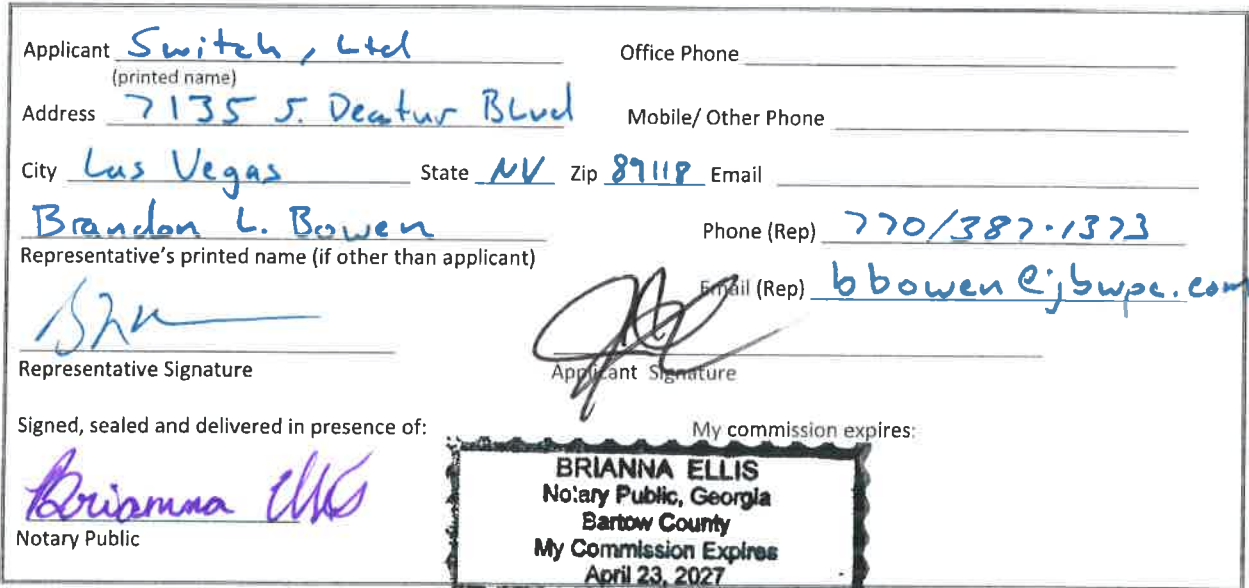 Applicant Switch, Ltd Office Phone
(printed name)
Address 7135 S. Decatur Blvd Mobile/ Other Phone
City Las Vegas State NV Zip 89118 Email
Brandon L. Bowen Phone (Rep) 770/387-1373
Representative's printed name (if other than applicant)
Email (Rep) bbowen@jbwpc.com
Representative Signature Applicant Signature
Signed, sealed and delivered in presence of: My commission expires:
Brianna Ellis
Notary Public
BRIANNA ELLIS
Notary Public, Georgia
Bartow County
My Commission Expires
April 23, 2027